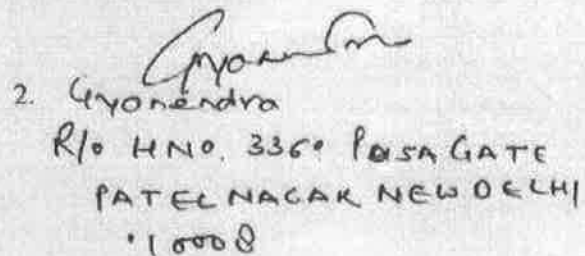 2. Gyanendra
R/o HNO. 3360 PUSA GATE
PATEL NAGAR NEW DELHI
110008